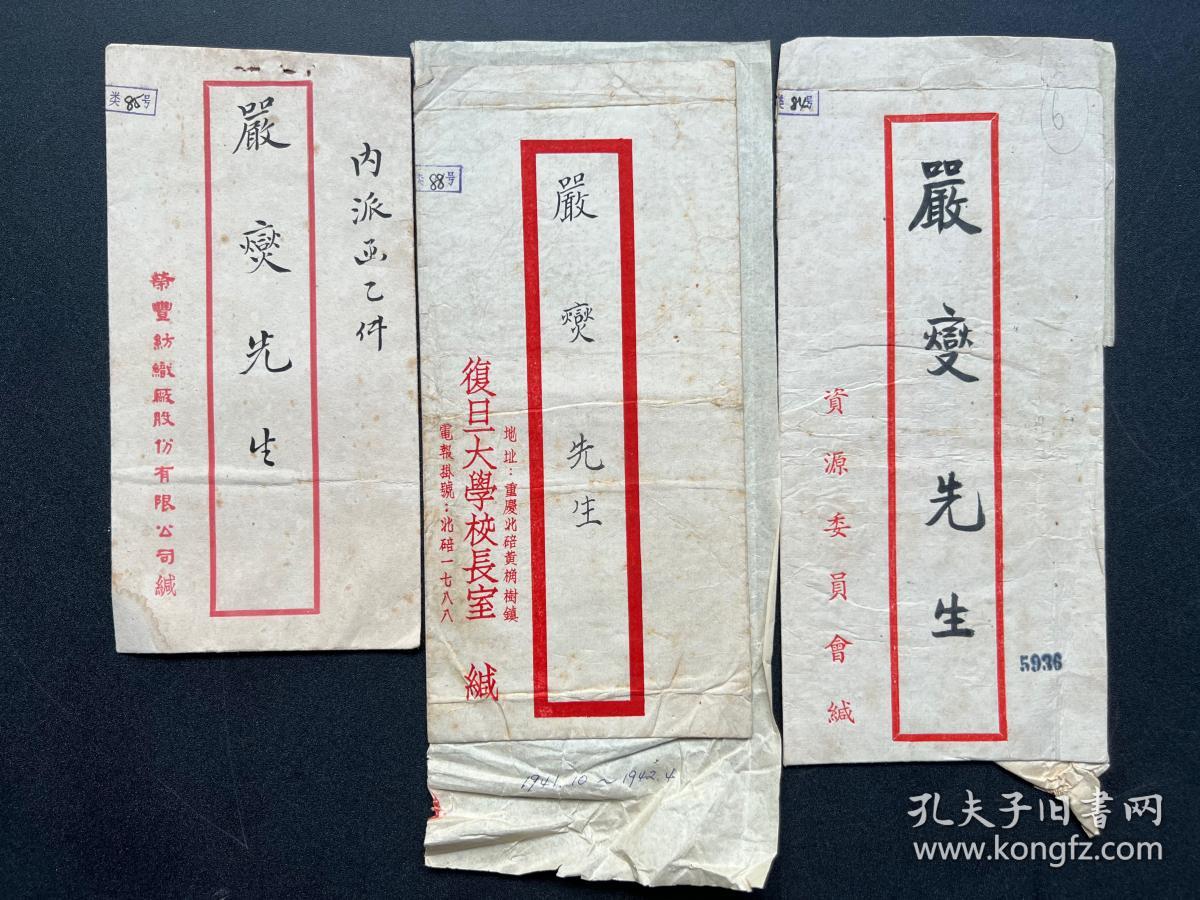 类85号
嚴燮先生
内派函乙件
榮豐紡織廠股份有限公司緘
类88号
嚴燮先生
地址：重慶北碚黄桷樹鎮
復旦大學校長室 緘
電報掛號：北碚一七八八
1941.10～1942.4
84号
6
嚴燮先生
資源委員會緘
5936
孔夫子旧书网
www.kongfz.com